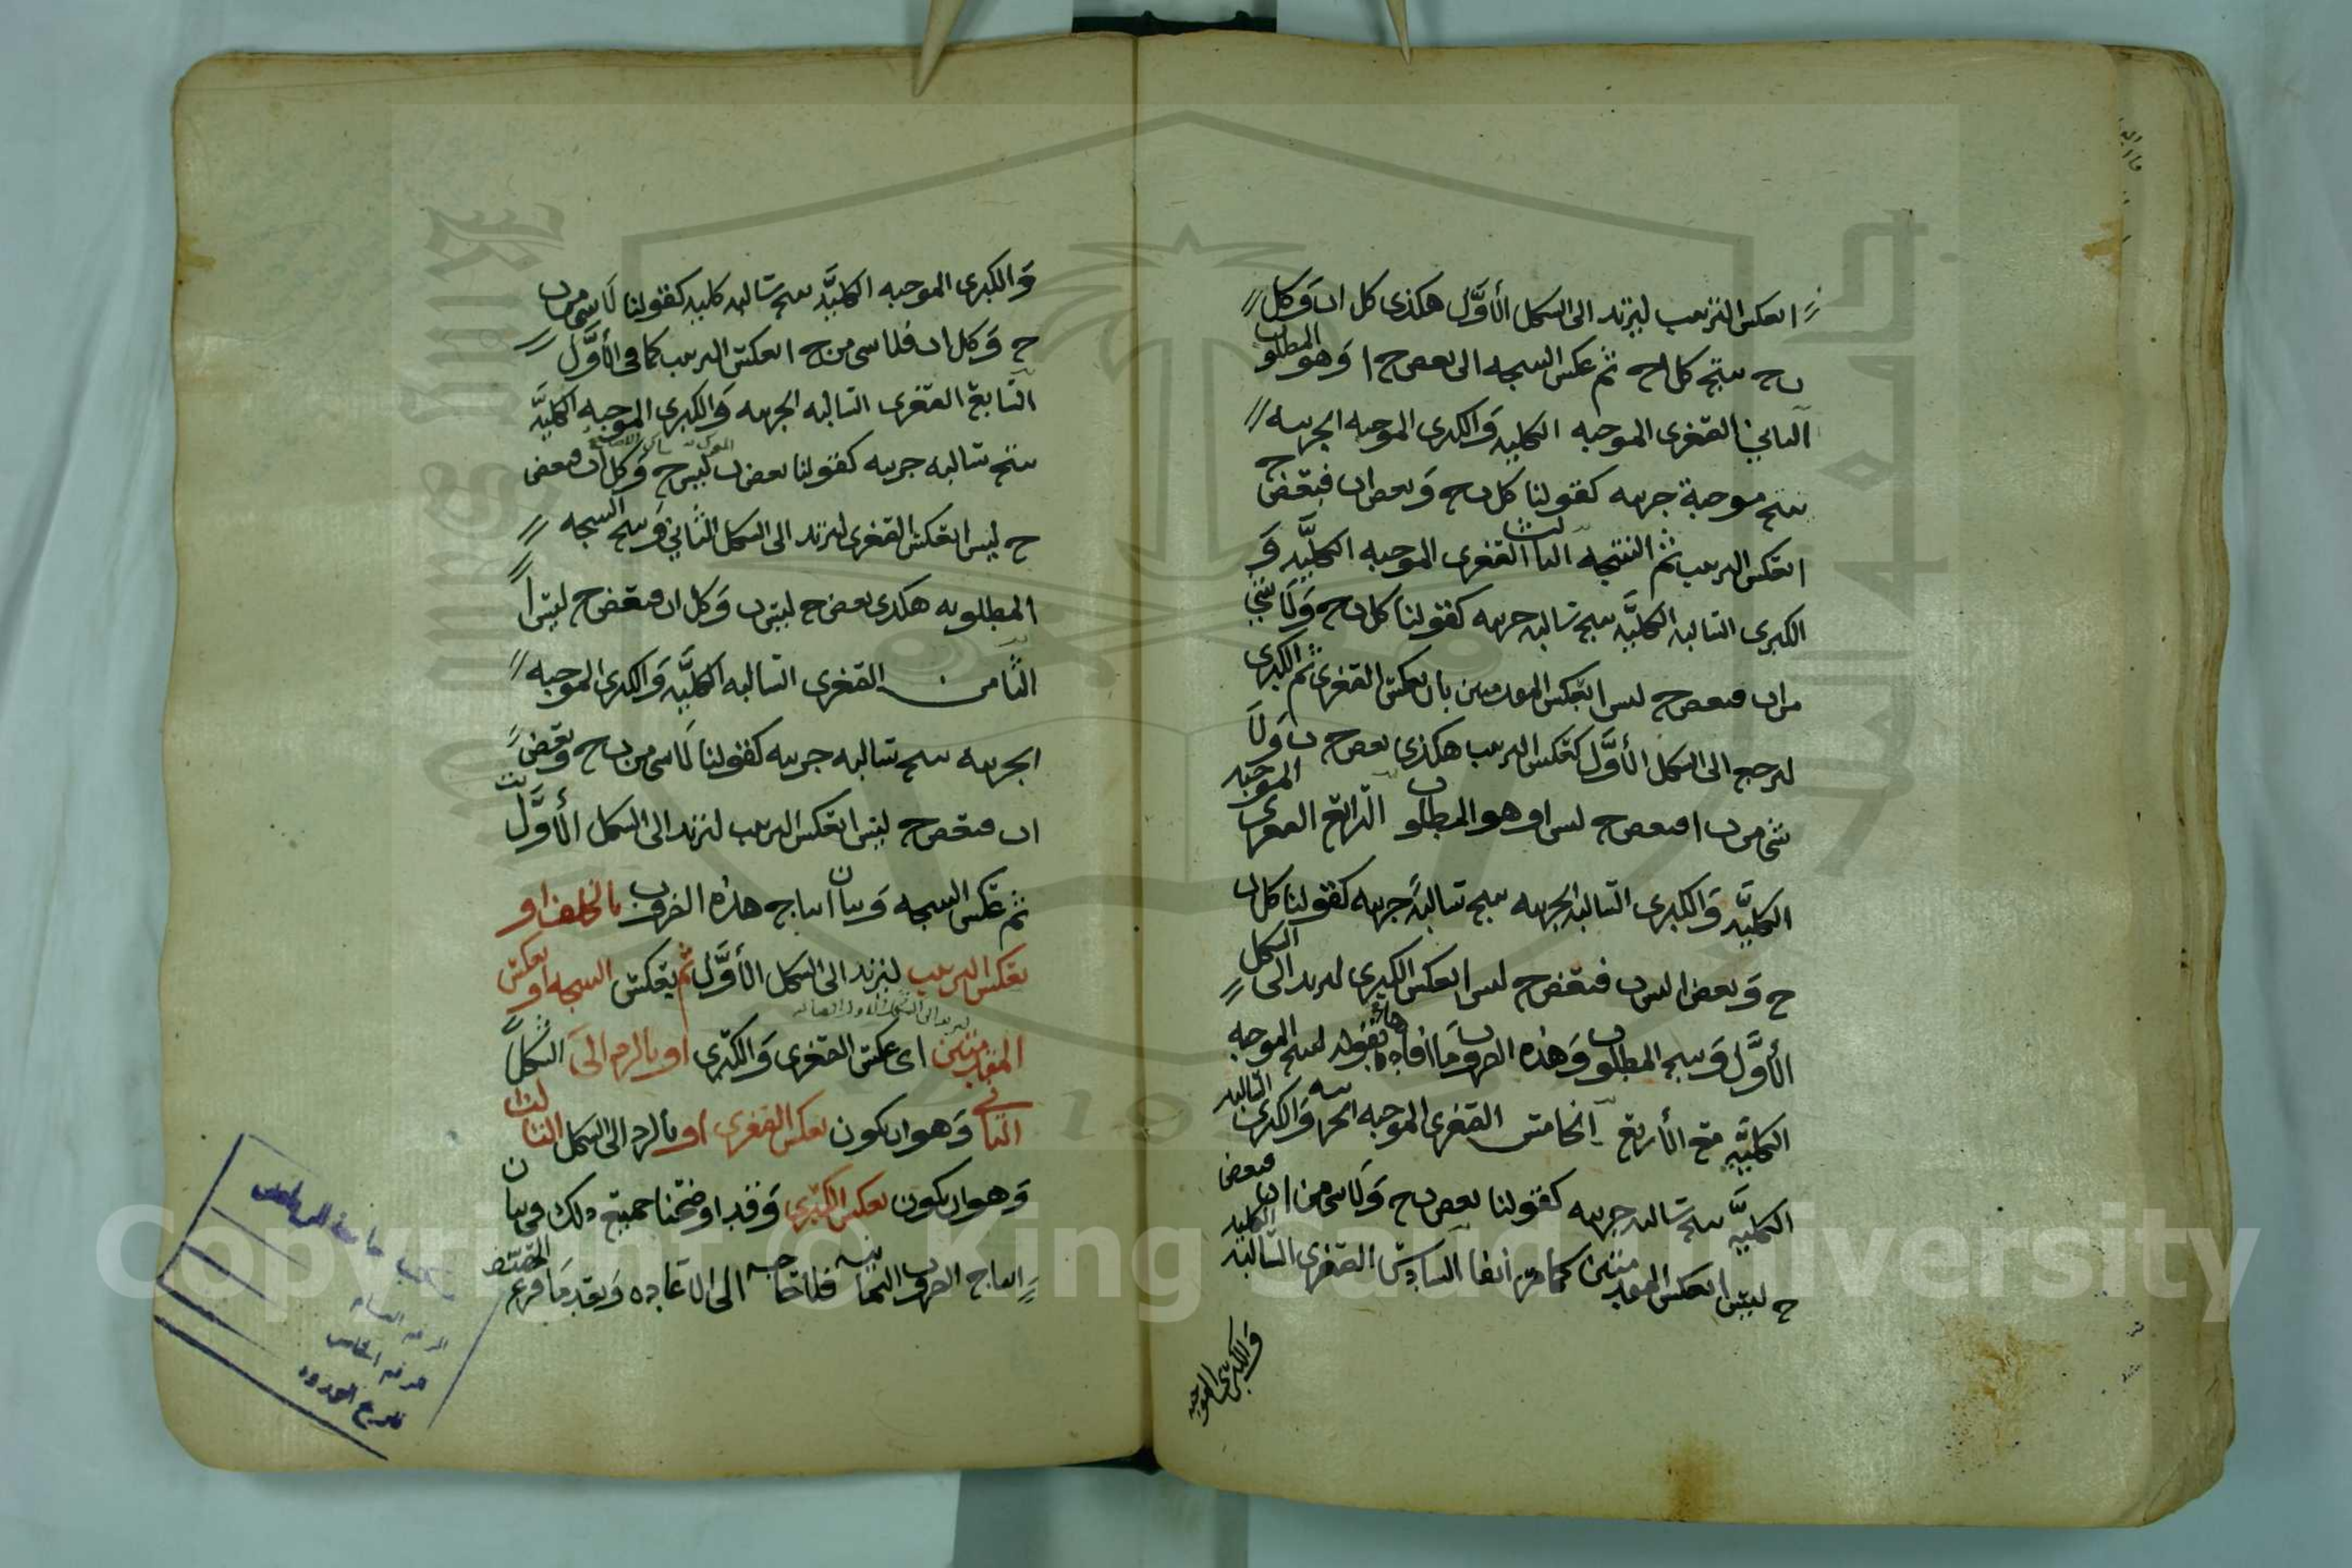 ا نعكس الترتيب ليرتد الى الشكل الأوَّل هكذى كل اب وَكل
ب ج ينتج كل ا ج ثم عكس النتيجه الى بعض ج ا وَهو المطلوب
الثاني الصغرى الموجبه الكليه وَالكبرى الموجبه الجزييه
ينتج موجبة جزييه كقولنا كل ب ج وَبعض اب فبعض ج
ا نعكس الترتيب ثم النتيجه الثالث الصغرى الموجبه الكليَّه وَ
الكبرى السالبه الكليَّه ينتج سالبه جزييه كقولنا كل ب ج وَلَا شي
من اب فبعض ج ليس ا بعكس المقدمتين بان نعكس الصغرى ثم الكبرى
ليرجع الى الشكل الأوَّل كعكس الترتيب هكذى بعض ج ب وَلَا
شي من ب ا فبعض ج ليس ا وهو المطلوب الرّابع الصغرى الموجبه
الكليَّه وَالكبرى السّالبه الجزييه ينتج سالبةً جزييه كقولنا كل ب
ج وَبعض ا ليس ب فبعض ج ليس ا بعكس الكبرى ليرتد الى الشكل
الأوَّل وَينتج المطلوب وَهذه الضروب مَا افاده بقوله لينتج الموجبه
الكليَّه مَع الأربَع الخامس الصغرى الموجبه الجزييه وَالكبرى السّالبه
الكليَّه ينتج سالبه جزييه كقولنا بعض ب ج وَلَا شي من اب فبعض
ج ليسَ ا بعكس المقدمتين كما مَر انفا السّادس الصغرى السّالبَه الكليه
وَالكبرَى الموجبه
وَالكبرى الموجبه الكليَّه ينتج سَالبه كليه كقولنا لَا شي من ب
ج وَكل اب فلا شي من ج ا بعكس الترتيب كما في الأوَّل
السّابع الصغرى السّالبه الجزييه وَالكبرى الموجبه الكليَّه
ينتج سالبه جزييه كقولنا بعض ب ليس ج وَكل اب فبعض
ج ليس ا بعكس الصغرى ليرتد الى الشكل الثّاني وَينتج النتيجه
المطلوبه هكذى بعض ج ليسَ ب وَكل اب فبعض ج ليسَ ا
الثّامن الصغرى السّالبه الكليَّه وَالكبرى الموجبه
الجزييه ينتج سالبه جزييه كقولنا لَا شي من ب ج وبعض
اب فبعض ج ليسَ ا بعكس الترتيب ليرتد الى الشكل الأوَّل
ثم عَكس النتيجه وَبيان انتاج هذه الضروب بالخلف او
بعَكس الترتيب ليرتد الى الشكل الأوَّل ثم يعكس النتيجه او بعكس
المقدمتين اى عكس الصغرى وَالكبرى او بالرد الى الشكل
الثاني وَهو ان يكون بعكس الصغرى او بالرد الى الشكل الثالث
وَهو ان يكون بعكس الكبرى وَقد اوضحنا جميع ذلك في بيان
انتاج الضروب الثمانيه فلا حاجه الى الاعَاده وَبعد مَا فرغ المصنف
الرقم العام
الرقم الخاص